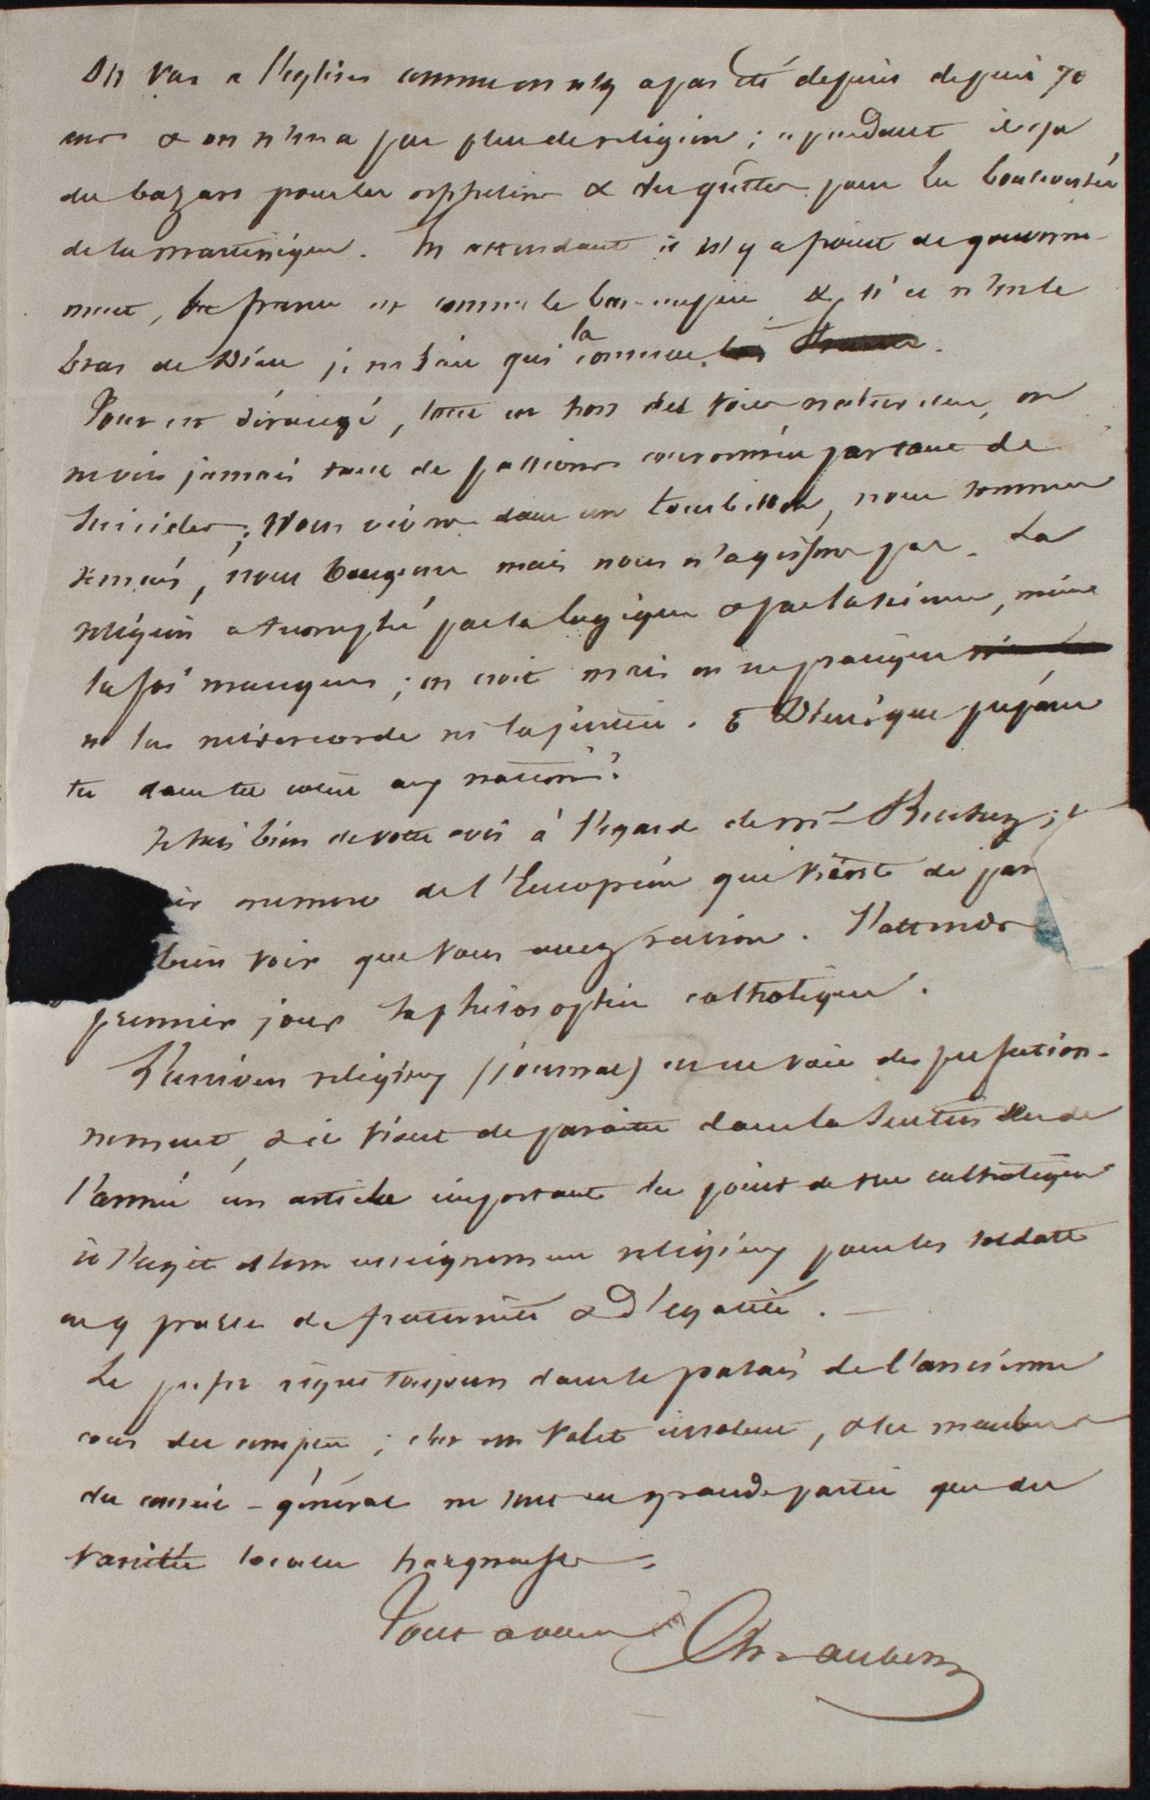 On va à l'église comme on n'y a pas été depuis depuis 70
ans & on n'en a pas plus de religion ; cependant il y a
des bazars pour les orphelins & des quêtes pour les bouleversés
de la martinique. En attendant il n'y a point de gouverne-
ment, la france est comme le bas-empire & si ce n'est le
bras de Dieu je ne sais qui la
Tout est dérangé, tout est hors des voies naturelles, on
ne vit jamais tant de passions couronnées par tant de
suicides ; Nous vivons dans un tourbillon, nous sommes
remués, nous bougeons mais nous n'agissons pas. La
religion a triomphé par la logique & par la science, même
la foi manque ; on croit mais on ne pratique
ni la miséricorde ni la justice. ô Dieu ! que prépares
tu dans ta main aux nations ?
Je suis bien de votre avis à l'égard de Mr Buchez ;
numéro de l'Européen qui vient de par
bien voir que vous avez raison. J'attends
premier jour sa philosophie catholique.
L'univers religieux (journal) est en voie de perfection-
nement, & il vient de paraitre dans la Sentinelle de
l'armée un article important du point de vue catholique
il s'agit d'un enseignement religieux pour les soldats
aux prises de fraternité & d'égalité. —
Le préfet règne toujours dans le palais de l'ancienne
cour des comptes ; c'est un valet insolent, & les membres
du conseil-général ne sont en grande partie que des
vanités locales hargneuses.
Tout à vous